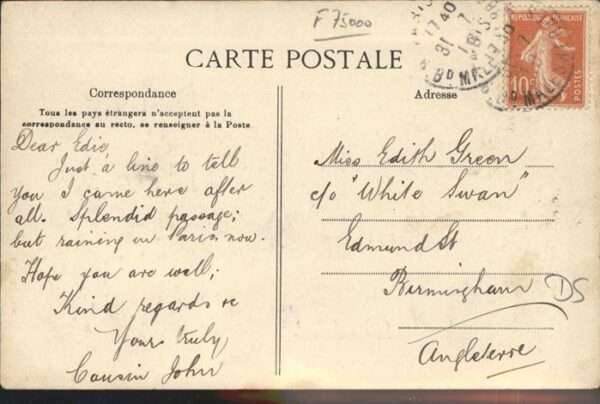 F 75000
CARTE POSTALE
Correspondance
Tous les pays étrangers n'acceptent pas la
correspondance au recto, se renseigner à la Poste
Dear Edie
Just a line to tell
you I came here after
all. Splendid passage;
but raining in Paris now.
Hope you are well;
Kind regards &c
Yours truly
Cousin John
17 40
31 7
REPUBLIQUE FRANÇAISE
10c
POSTES
Adresse
Miss Edith Green
c/o "White Swan"
Edmund St
Birmingham
Angleterre
DS